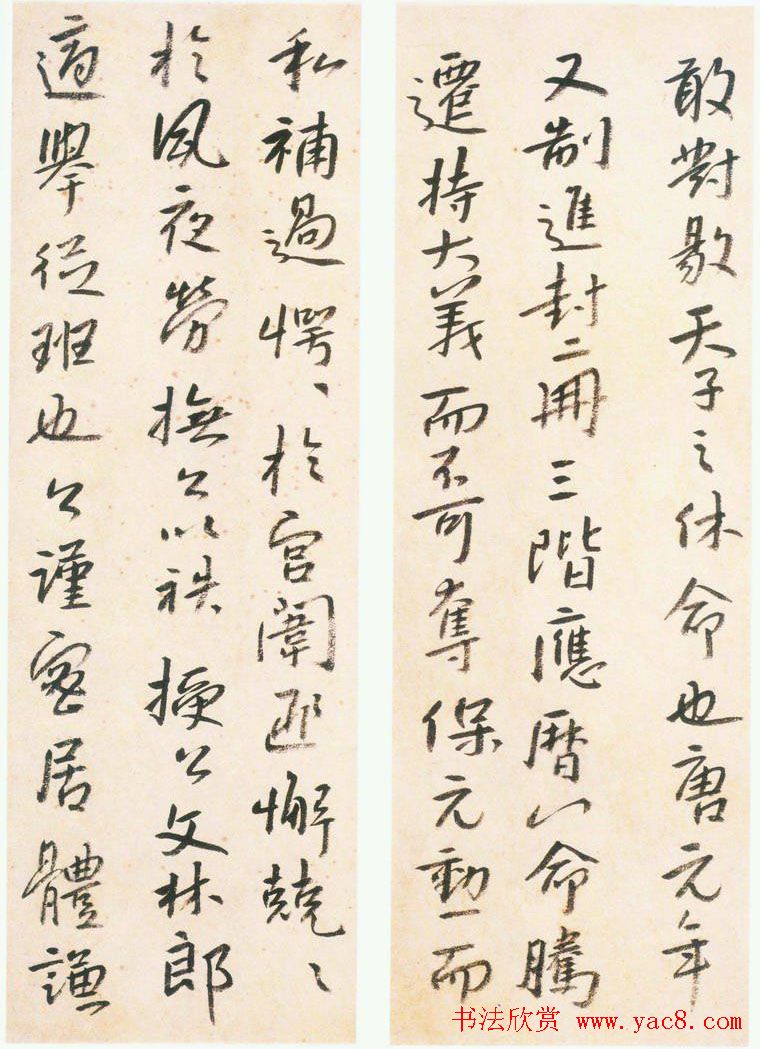 敢對敭天子之休命也唐元年
又制進封二冊三階應暦以命騰
遷持大義而不可奪保元勳一而
私補過愕〻於宮闈匪懈兢〻
於夙夜勞撫公以秩授公文林郎
適舉從班也公謹密居體謙
书法欣赏 www.yac8.com